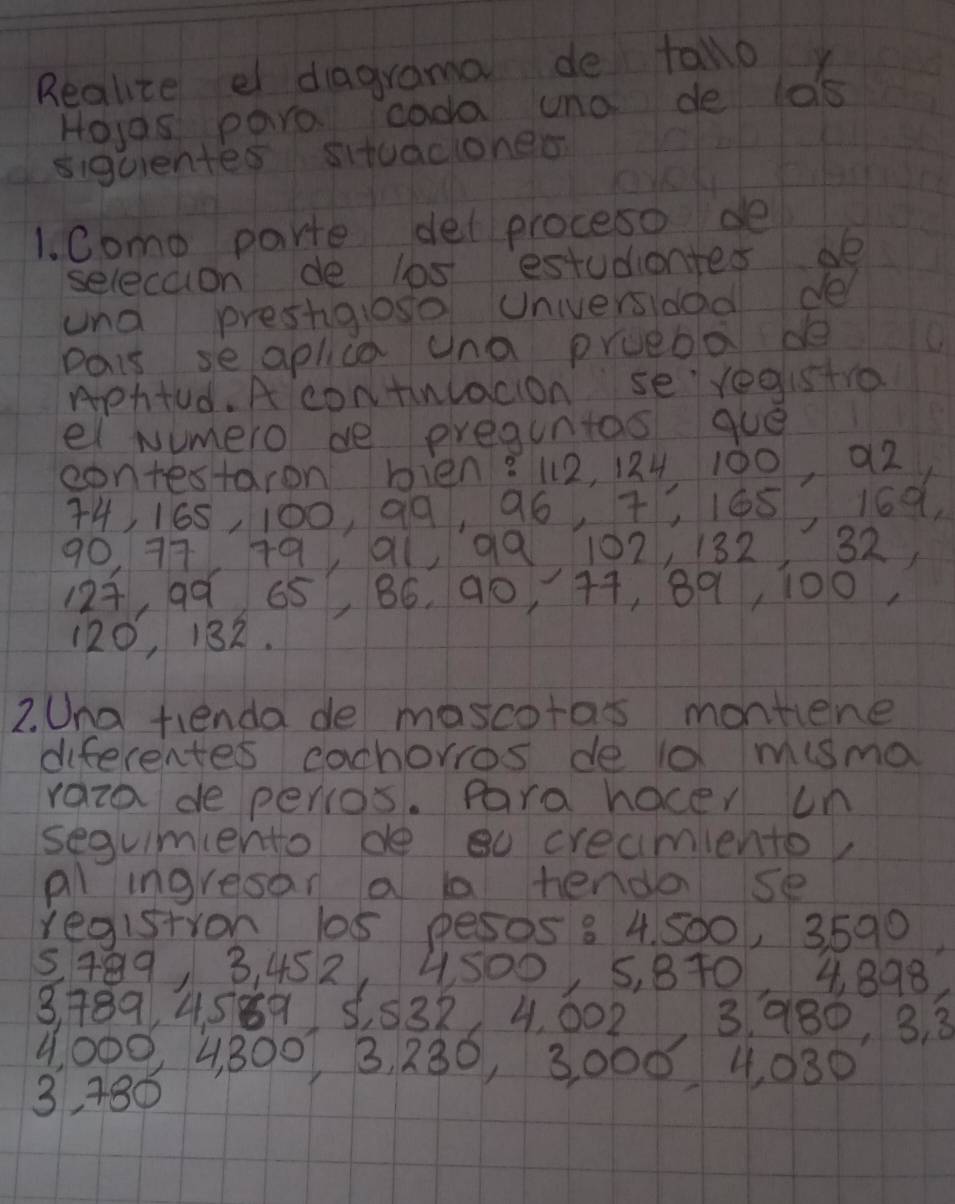 Realize el diagrama de tallo y
Hojas para cada una de las
siguientes situaciones
1. Como parte del proceso de
seleccion de los estudiantes de
una prestigioso Universidad de
Pais se aplica una prueba de
Aptitud. A continuacion se registra
el Numero de preguntas que
contestaron bien: 112, 124, 100, 92,
74, 165, 100, 99, 96, 7, 165, 169,
90, 77, 79, 91, 99 102, 132, 32,
127, 99, 65, 86, 90, 77, 89, 100,
120, 132.
2. Una tienda de mascotas mantiene
diferentes cachorros de la misma
raza de perros. Para hacer un
seguimiento de su crecimiento,
al ingresar a la tienda se
registran los pesos: 4.500, 3,590,
5,789, 3,452, 4,500, 5,870, 4,898,
3,789, 4,569, 5,532, 4.002, 3.980, 3,3
4,000, 4,300, 3,230, 3,000, 4,030
3,780